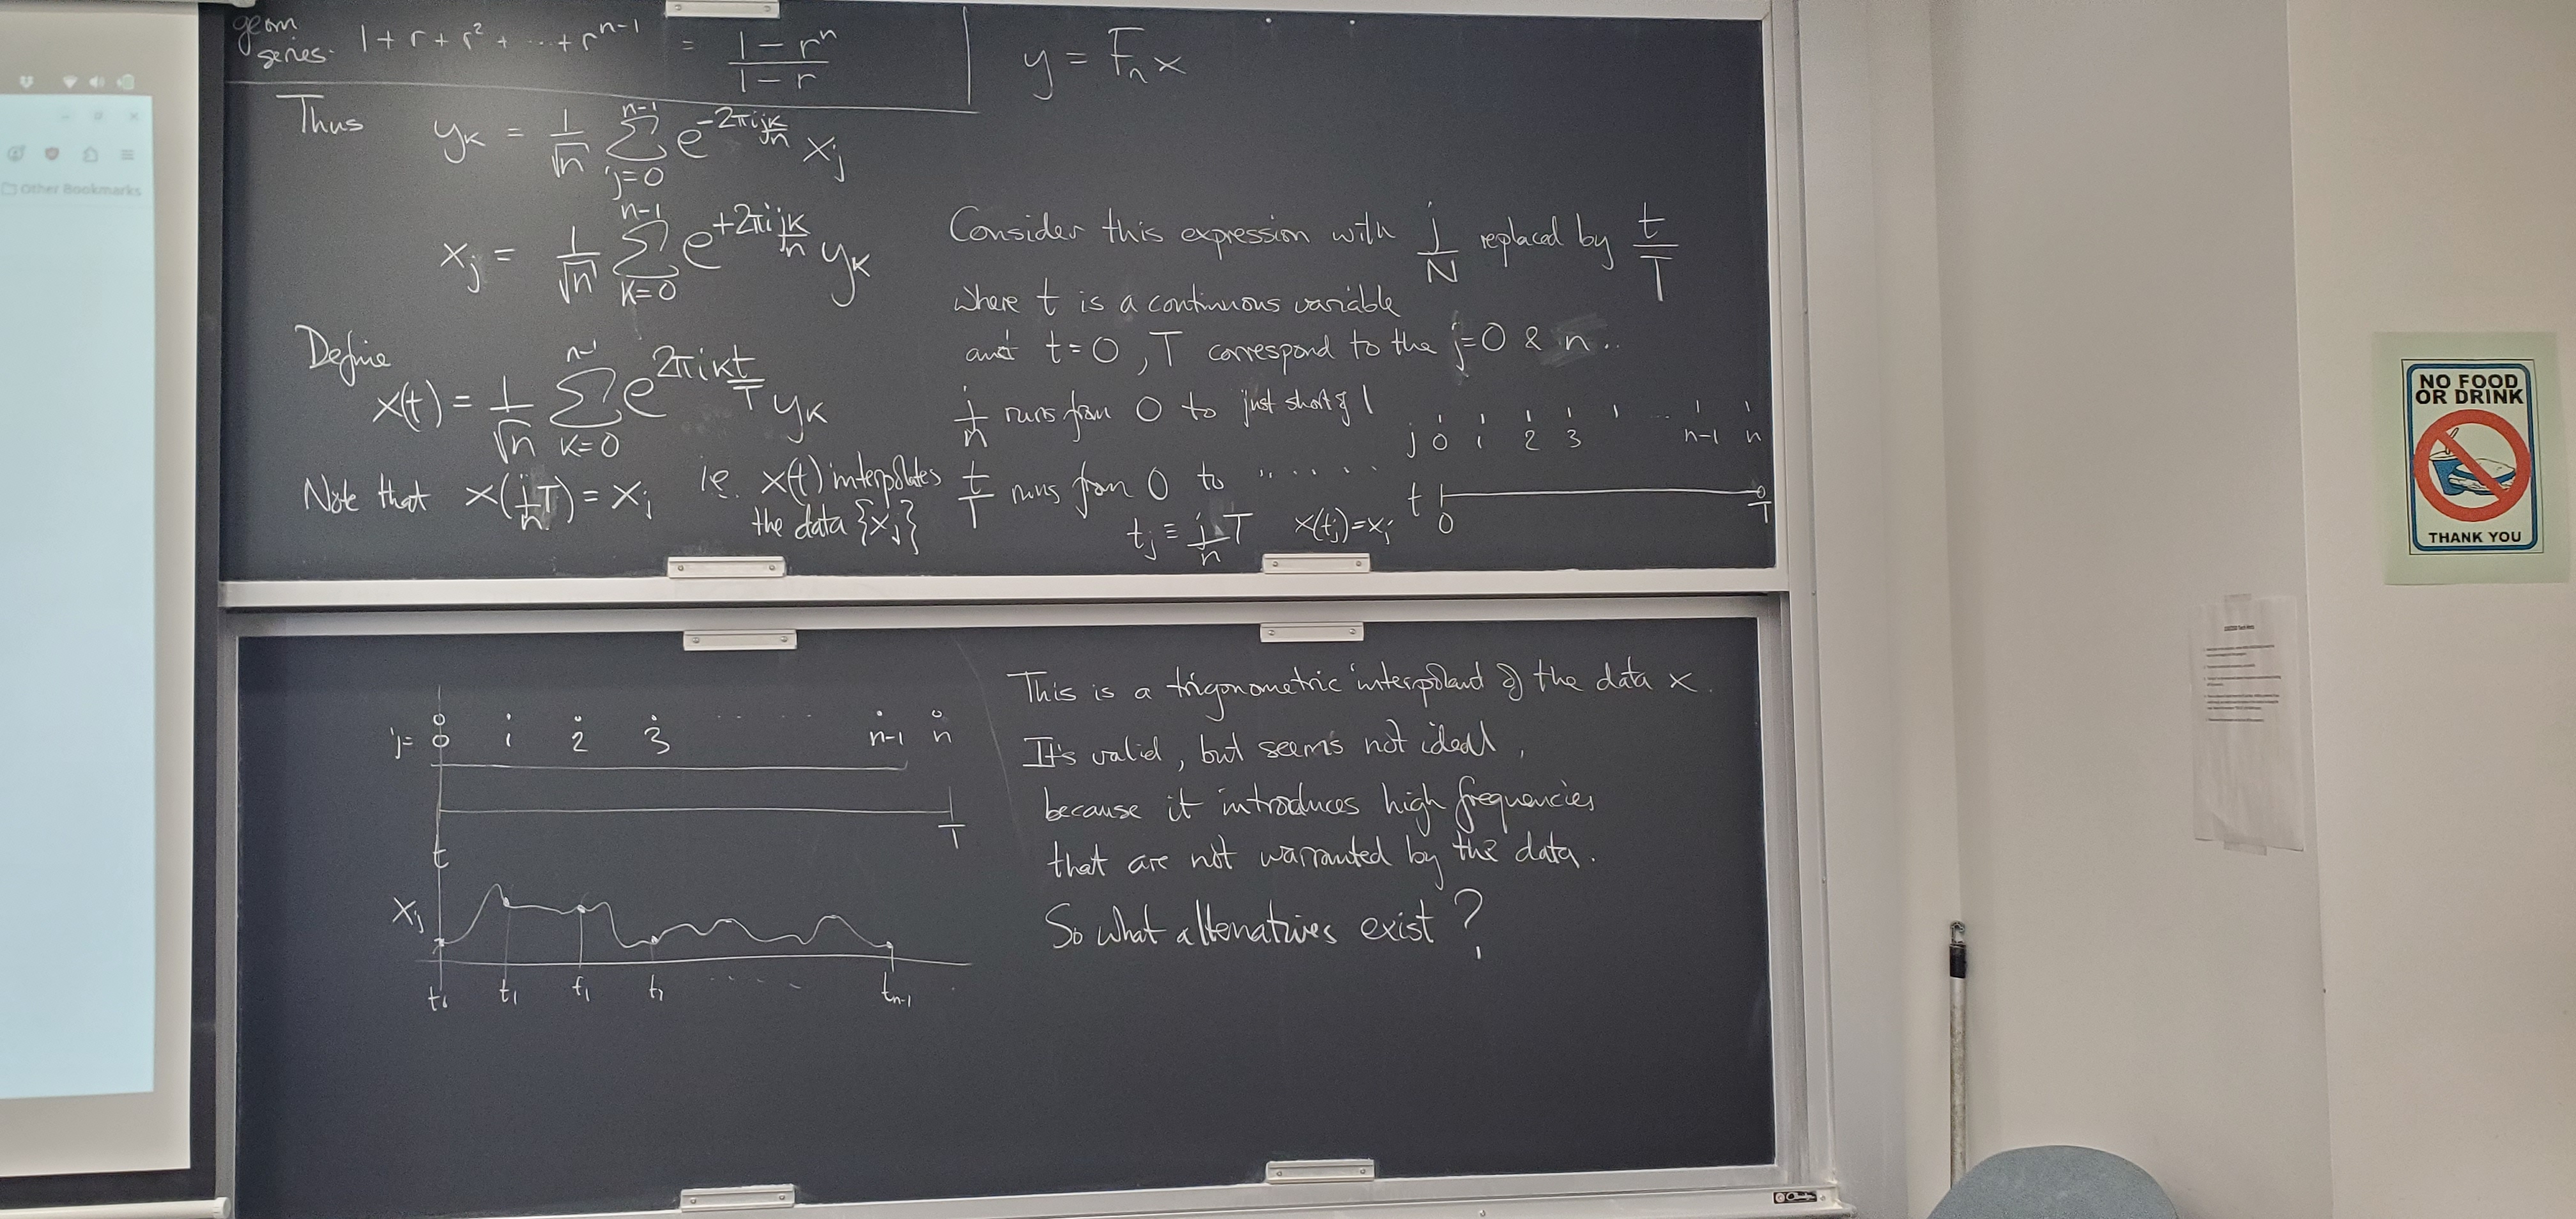 geom series. 1 + r + r² + ... + r^{n-1} = (1 - r^n)/(1 - r)
y = F_n x
Thus y_k = 1/√n Σ_{j=0}^{n-1} e^{-2πi jk/n} x_j
x_j = 1/√n Σ_{k=0}^{n-1} e^{+2πi jk/n} y_k
Define
x(t) = 1/√n Σ_{k=0}^{n-1} e^{2πikt/T} y_k
Note that x(j/n T) = x_j i.e. x(t) interpolates
the data {x_j}
Consider this expression with j/N replaced by t/T
where t is a continuous variable
and t = 0, T correspond to the j=0 & n..
j/n runs from 0 to just short of 1
t/T runs from 0 to " . . . . .
t_j ≡ j/n T x(t_j) = x_j
j 0 1 2 3 ... n-1 n
t 0 T
j= 0 1 2 3 ..... n-1 n
T
t
x_j
t_1 t_1 ..... t_{n-1}
This is a trigonometric interpoland of the data x.
It's valid, but seems not ideal,
because it introduces high frequencies
that are not warranted by the data.
So what alternatives exist?
Other Bookmarks
NO FOOD
OR DRINK
THANK YOU